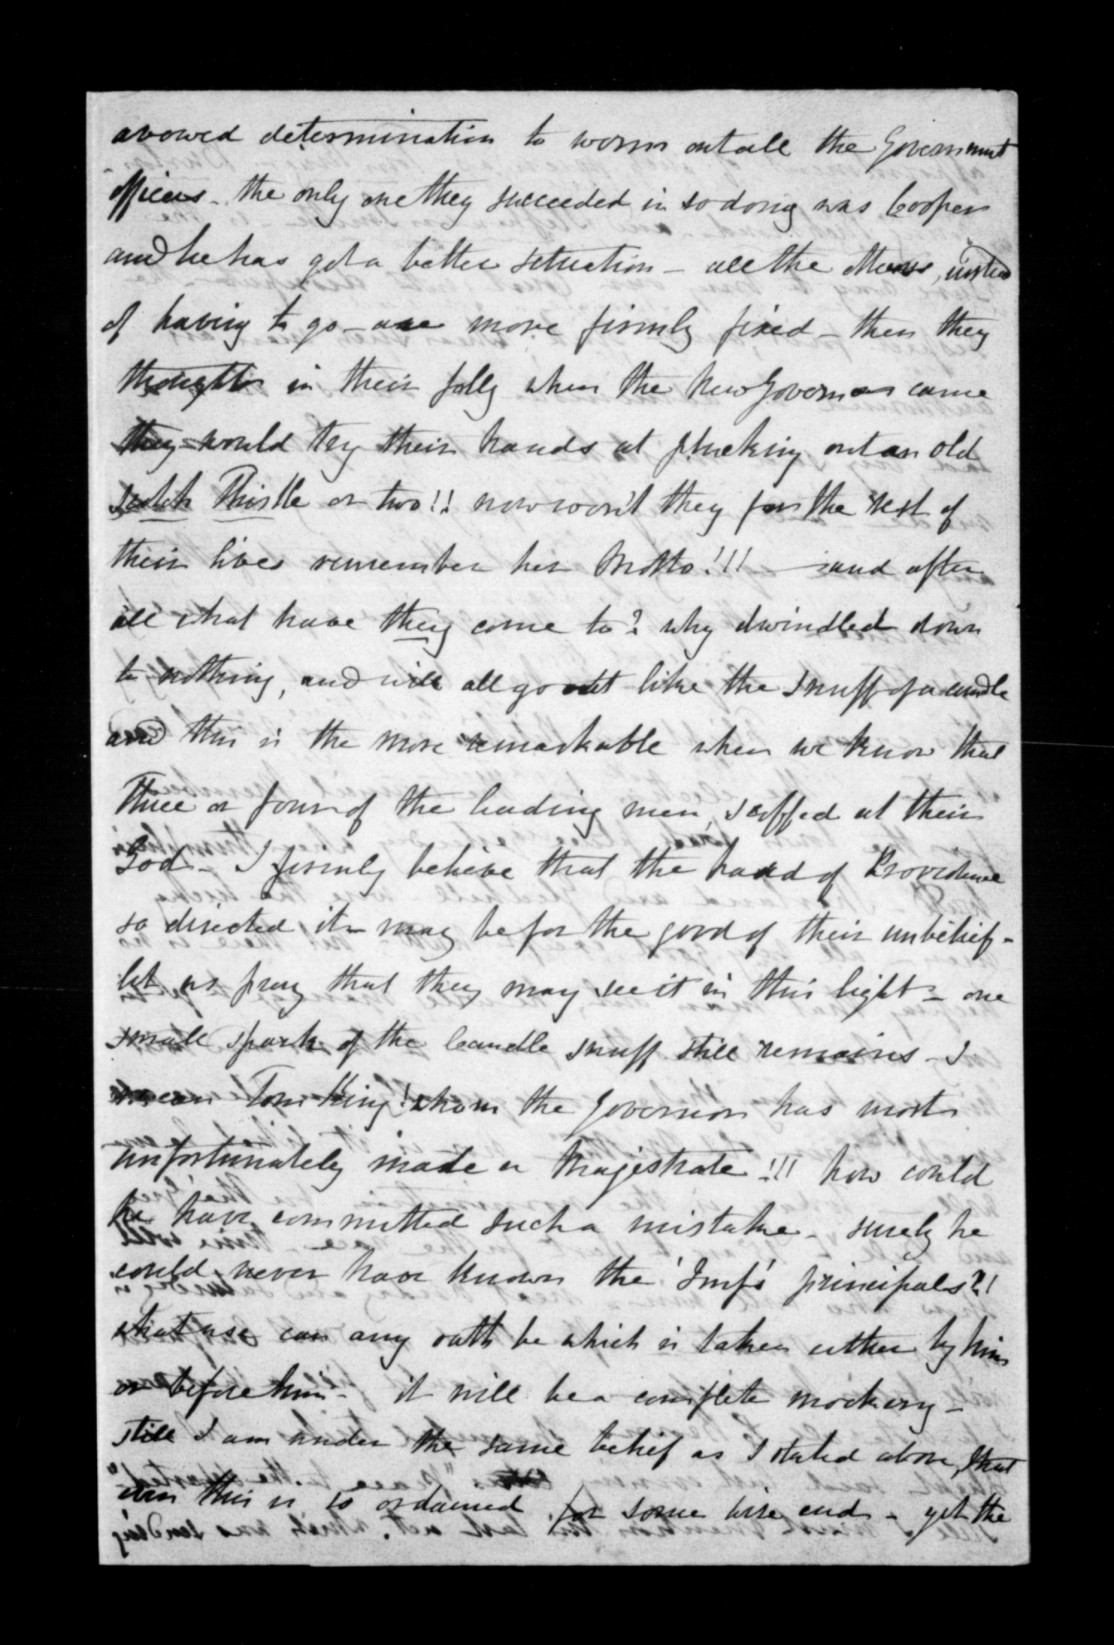 avowed determination to worm out all the Government
officers - the only one they succeeded in so doing was Cooper
and he has got a better situation - all the others, instead
of having to go - are more firmly fixed - then they
thought in their folly when the New Governor came
they would try their hands at plucking out an old
Scotch Thistle or two!! now won't they for the rest of
their lives remember her Motto!!! - and after
all what have they come to? why dwindled down
to nothing, and will all go out like the snuff of a candle
and this is the more remarkable when we know that
Three or four of the leading men, scoffed at their
God - I firmly believe that the hand of Providence
so directed it - may be for the good of their unbelief -
let us pray that they may see it in this light - one
small spark of the Candle snuff still remains - I
mean Tom King! whom the Governor has most
unfortunately made a Magistrate!!! how could
he have committed such a mistake - surely he
could never have known the 'Imp's principals?!
what use can any oath be which is taken either by him
or before him - it will be a complete mockery -
still I am under the same belief as I stated above, that
even this is so ordained for some wise end - yet the